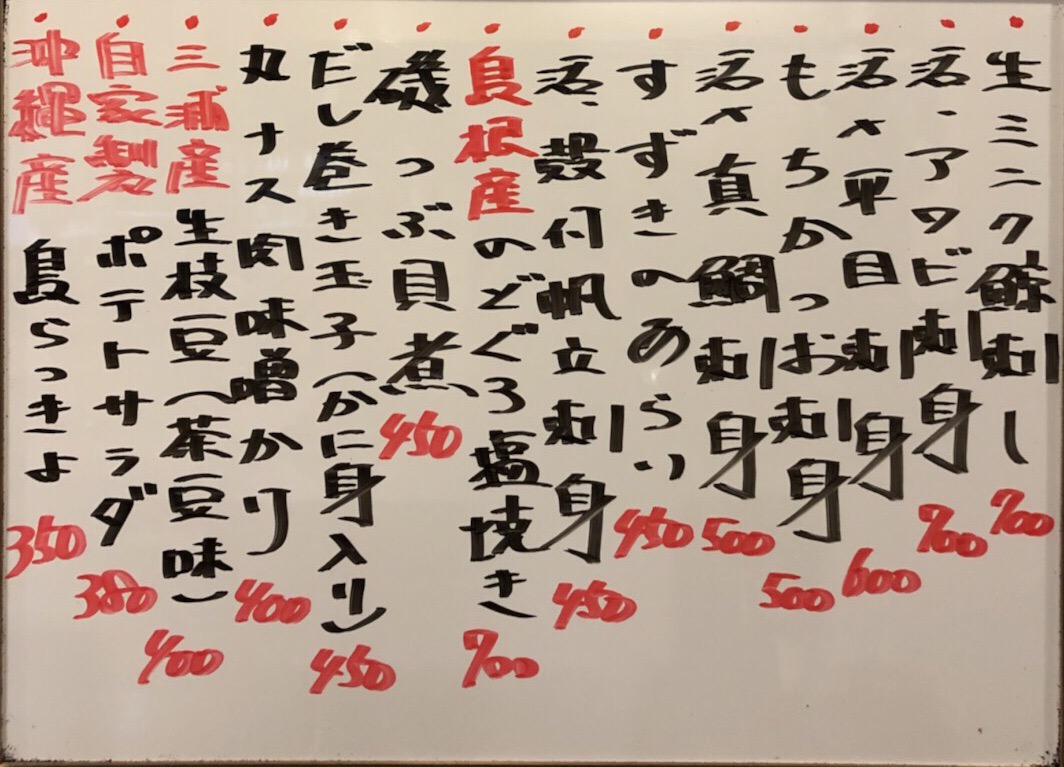 生ミンク鯨刺し 700
活、アワビ刺身 700
活〆平目刺身 600
もちかつお刺身 500
活〆真鯛刺身 500
すずきのあらい 450
活、殻付帆立刺身 450
島根産のどぐろ塩焼き 700
磯つぶ貝煮 450
だし巻き玉子(かに身入り) 450
丸ナス肉味噌かけ 400
三浦産 生枝豆(茶豆味) 400
自家製 ポテトサラダ 380
沖縄産 島らっきょ 350